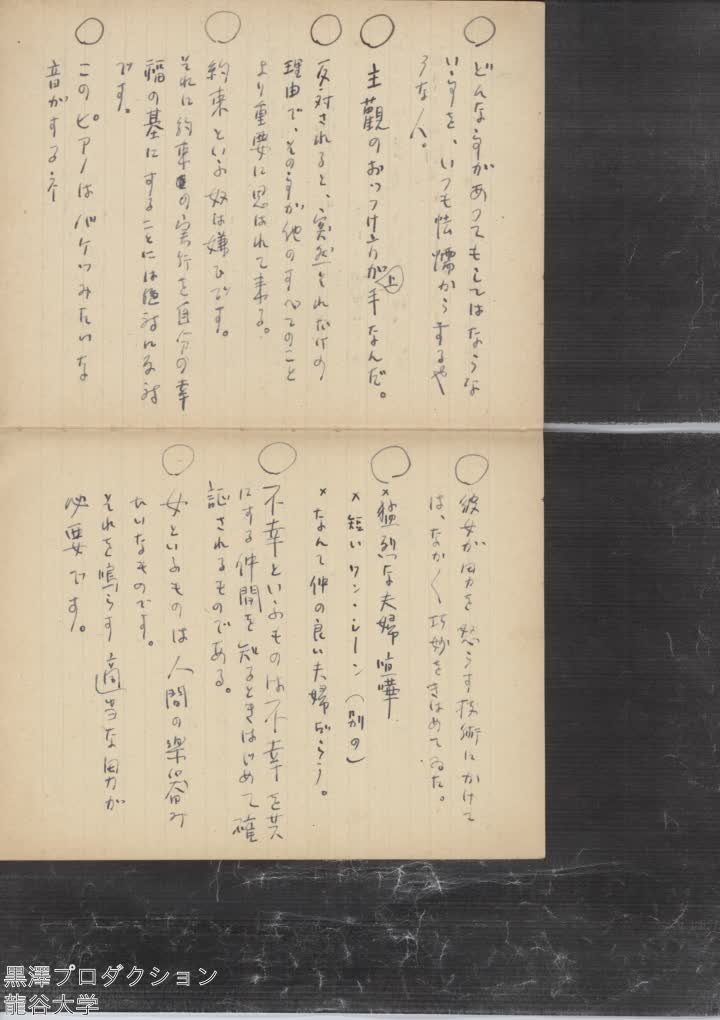 ○ どんな事があつてもしてはならな
い事を、いつも怯懦からするや
うな人。
○ 主観のおつつけ方が上手なんだ。
○ 反対されると、突然それだけの
理由で、その事が他のすべてのこと
より重要に思はれて来る。
○ 約束といふ奴は嫌ひです。
それに約束の実行を自分の幸
福の基にすることには絶対に反対
です。
○ このピアノはバケツみたいな
音がするネ
○ 彼女が男を怒らす技術にかけて
は、なか〱巧妙をきはめてゐた。
○ ×猛烈な夫婦喧嘩
×短いワン・シーン(別の)
×なんて仲の良い夫婦だらう。
○ 不幸といふものは不幸を共
にする仲間を知るときはじめて確
証されるものである。
○ 女といふものは人間の楽器み
たいなものです。
それを鳴らす適当な男が
必要です。
黒澤プロダクション
龍谷大学